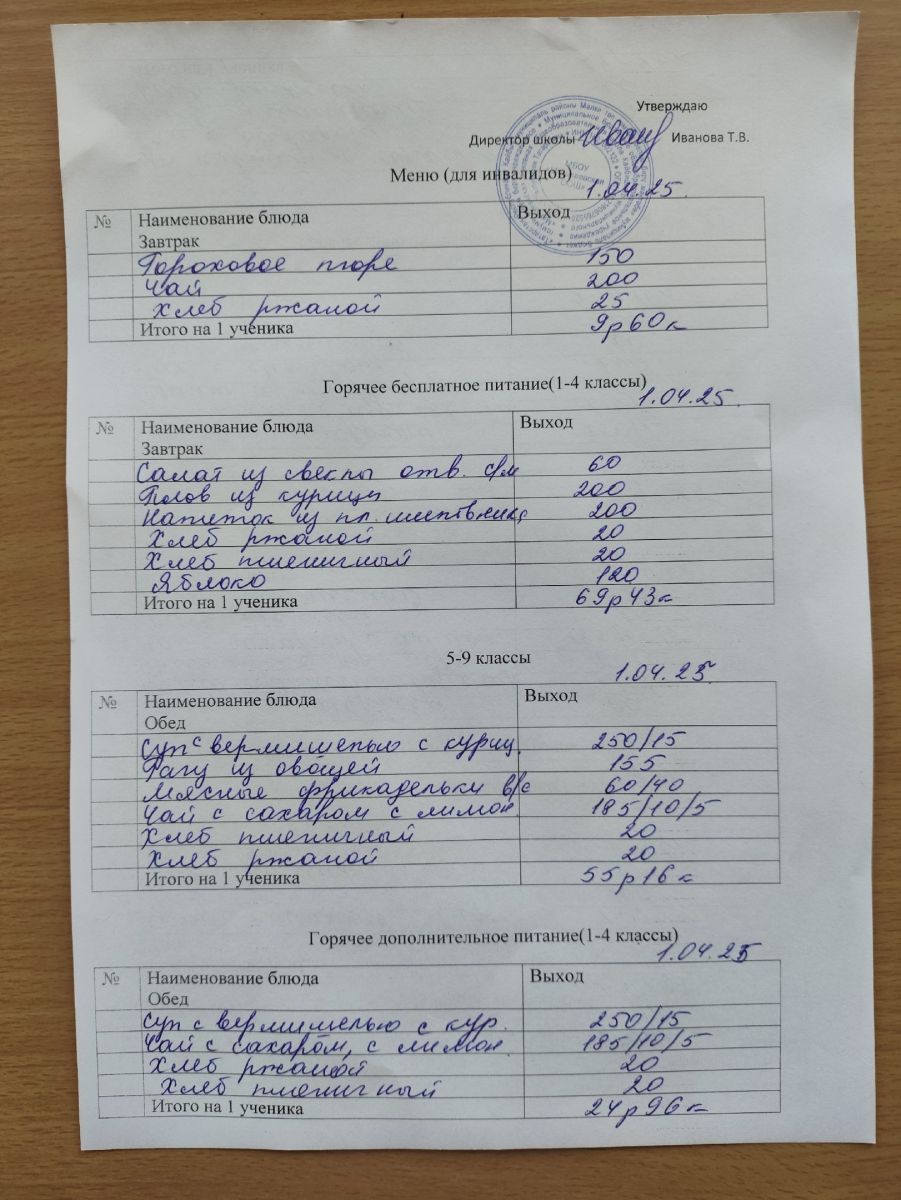 Утверждаю
Директор школы Иванова Т.В.
Меню (для инвалидов)
1.04.25.
№ Наименование блюда Выход
Завтрак
Гороховое пюре 150
Чай 200
Хлеб ржаной 25
Итого на 1 ученика 9р60к
Горячее бесплатное питание(1-4 классы)
1.04.25.
№ Наименование блюда Выход
Завтрак
Салат из свеклы отв. с/м 60
Плов из курицы 200
Напиток из пл. шиповника 200
Хлеб ржаной 20
Хлеб пшеничный 20
Яблоко 120
Итого на 1 ученика 69р43к
5-9 классы
1.04.25.
№ Наименование блюда Выход
Обед
Суп с вермишелью с куриц. 250/15
Рагу из овощей 155
Мясные фрикадельки в/с 60/40
Чай с сахаром с лимон. 185/10/5
Хлеб пшеничный 20
Хлеб ржаной 20
Итого на 1 ученика 55р16к
Горячее дополнительное питание(1-4 классы)
1.04.25
№ Наименование блюда Выход
Обед
Суп с вермишелью с кур. 250/15
Чай с сахаром, с лимон. 185/10/5
Хлеб ржаной 20
Хлеб пшеничный 20
Итого на 1 ученика 24р96к